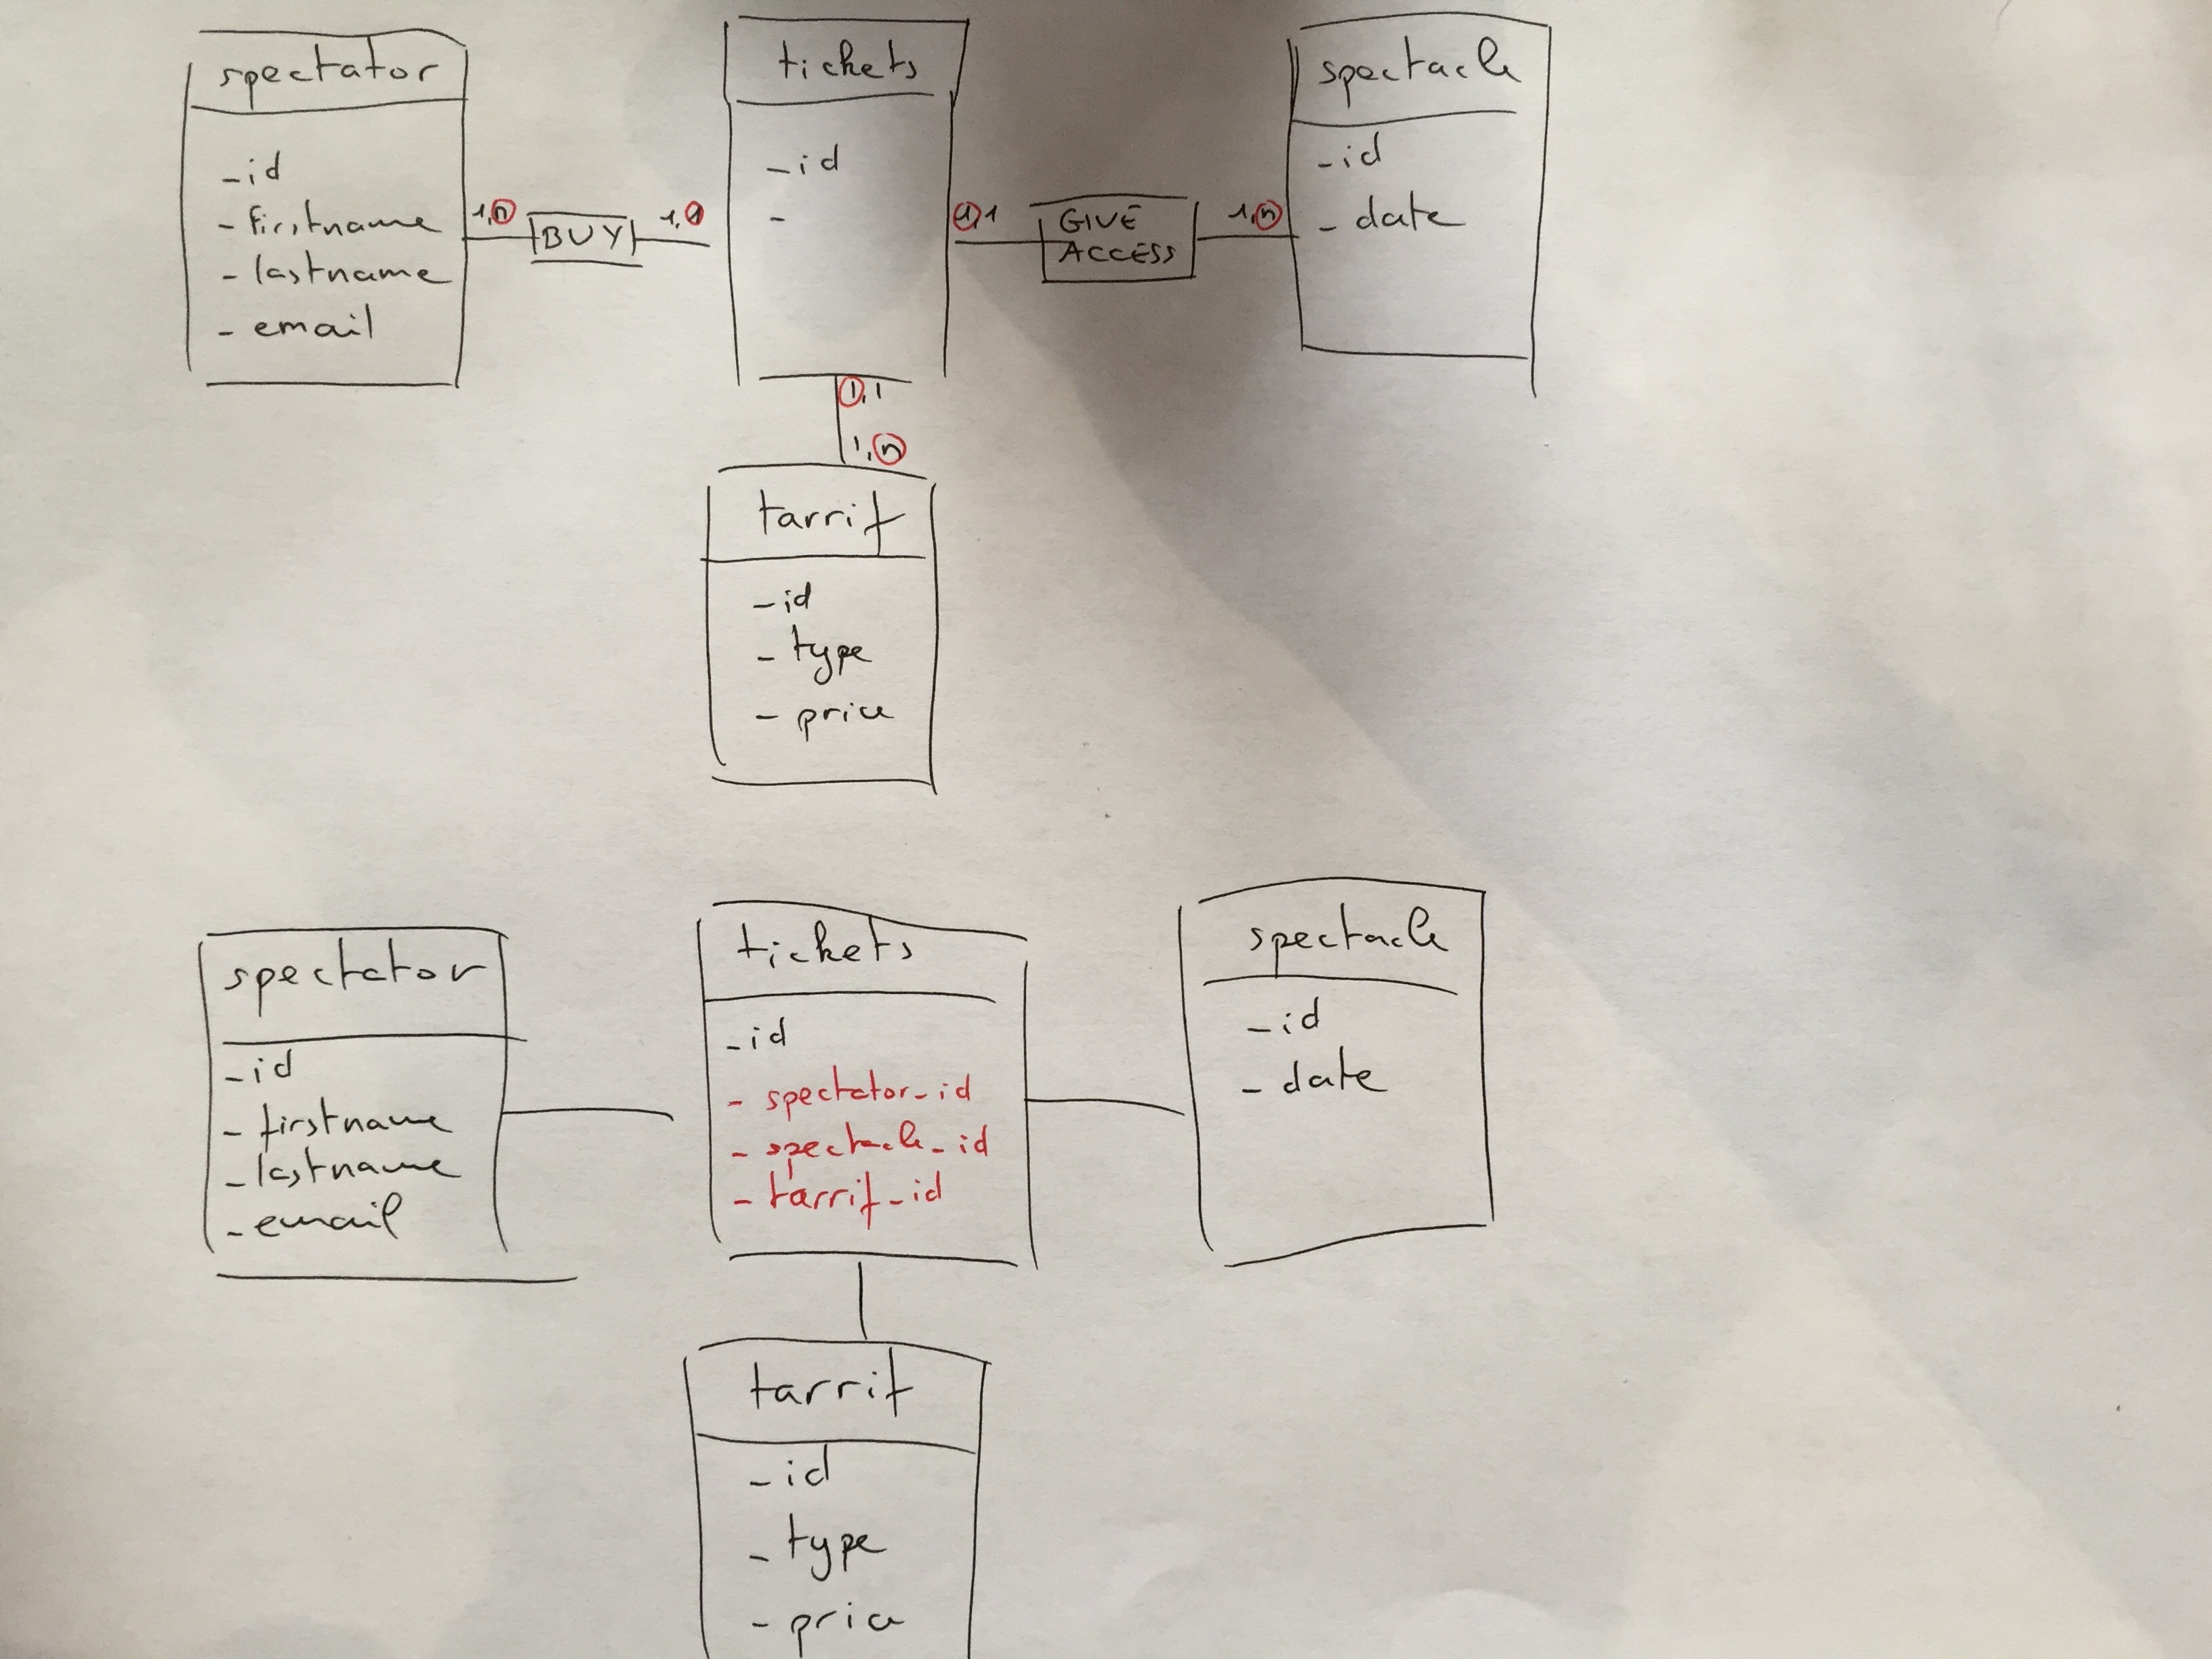 spectator
- id
- firstname
- lastname
- email
1,n
BUY
1,1
tickets
- id
-
1,1
GIVE
ACCESS
1,n
spectacle
- id
- date
1,1
1,n
tarrif
- id
- type
- price
spectator
- id
- firstname
- lastname
- email
tickets
- id
- spectator_id
- spectacle_id
- tarrif_id
spectacle
- id
- date
tarrif
- id
- type
- price